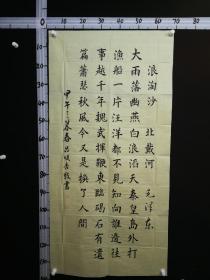 浪淘沙　北戴河　毛泽东
大雨落幽燕白浪滔天秦皇岛外打
渔船一片汪洋都不见知向谁边往
事越千年魏武挥鞭东临碣石有遗
篇萧瑟秋风今又是换了人间
甲午